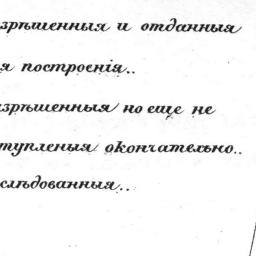 зрѣшенныя и отданныя
я построенія..
зрѣшенныя но еще не
тупленыя окончательно..
слѣдованныя..